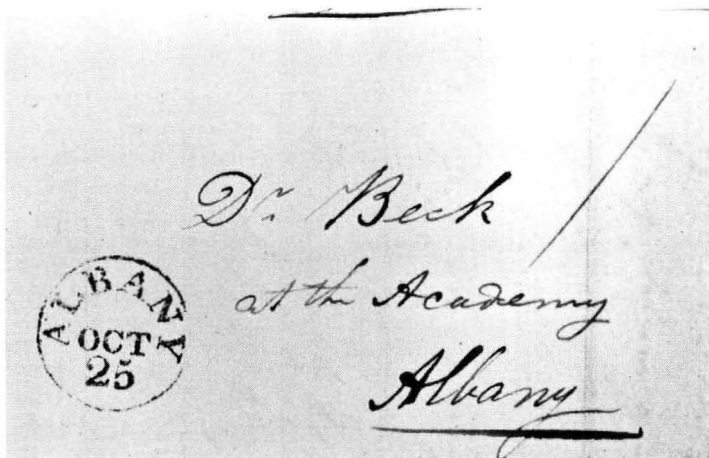 Dr Beck
at the Academy
Albany
ALBANY
OCT
25